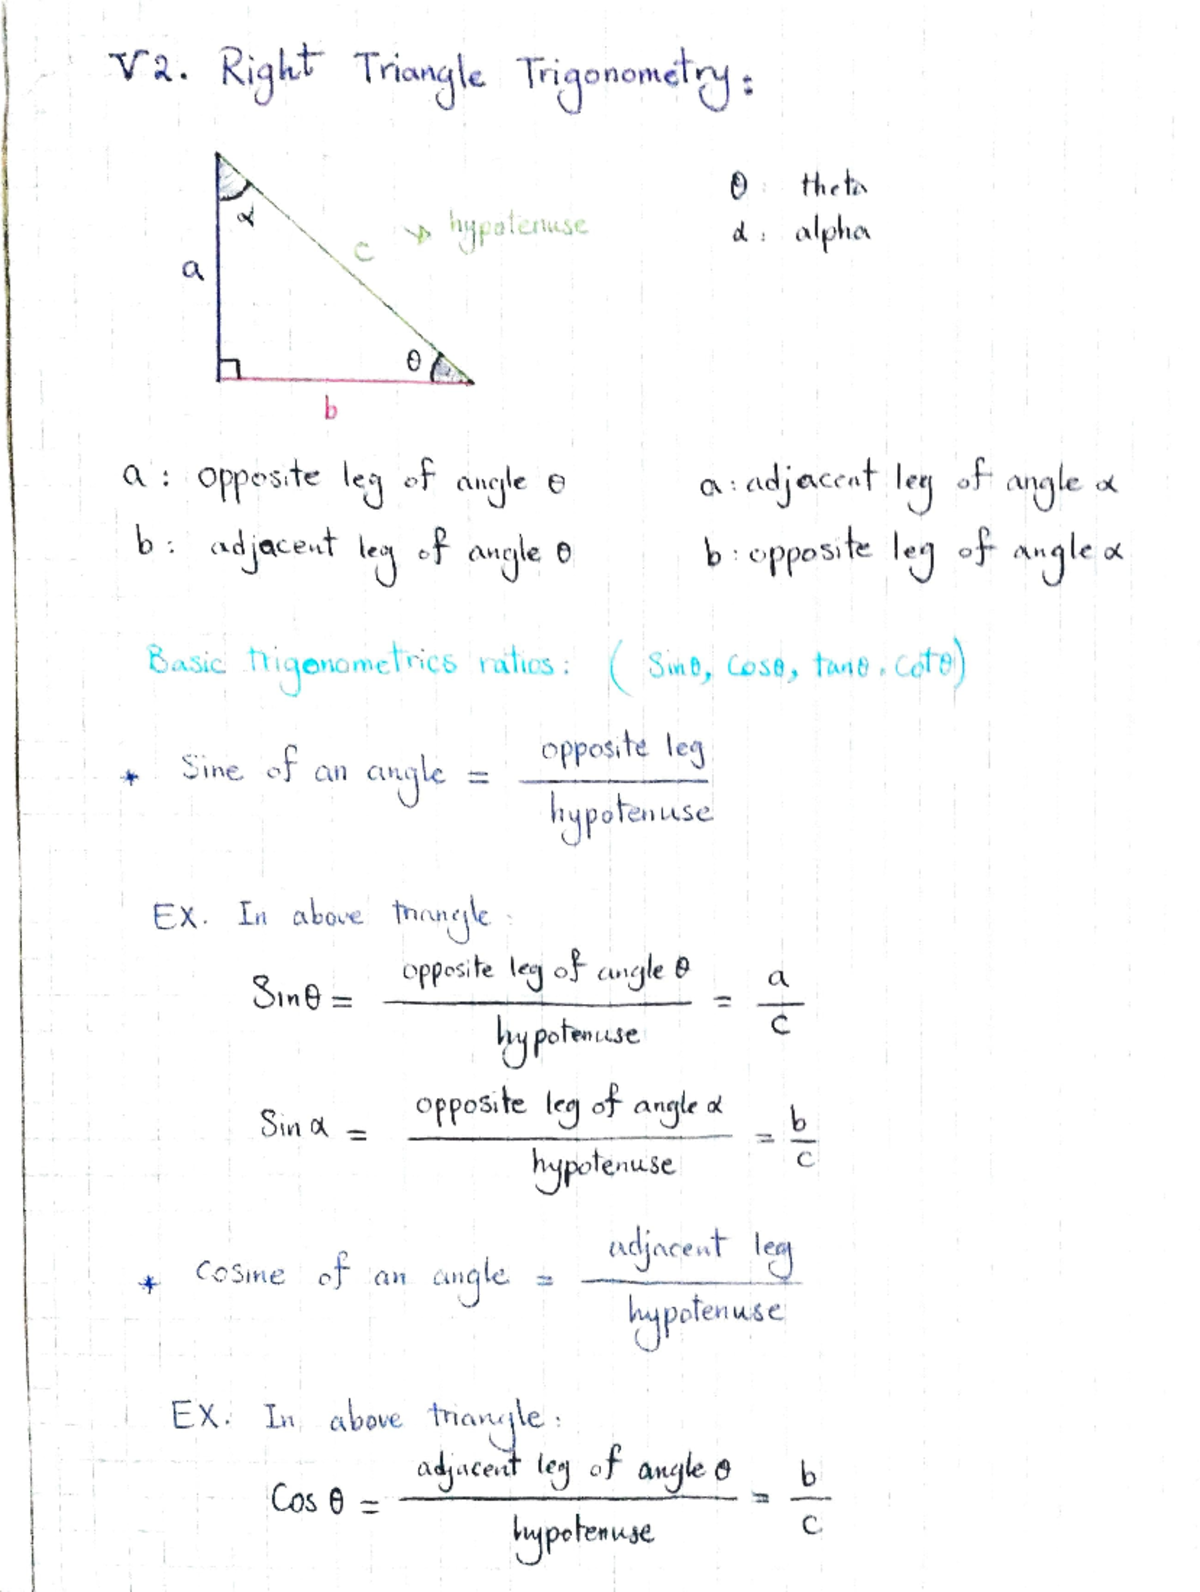 V2. Right Triangle Trigonometry:
θ : theta
α : alpha
α
a
c → hypotenuse
θ
b
a : opposite leg of angle θ
a : adjacent leg of angle α
b : adjacent leg of angle θ
b : opposite leg of angle α
Basic trigonometrics ratios : ( Sinθ, Cosθ, tanθ, Cotθ)
* Sine of an angle = opposite leg / hypotenuse
EX. In above triangle :
Sinθ = opposite leg of angle θ / hypotenuse = a / c
Sin α = opposite leg of angle α / hypotenuse = b / c
* Cosine of an angle = adjacent leg / hypotenuse
EX. In above triangle :
Cos θ = adjacent leg of angle θ / hypotenuse = b / c